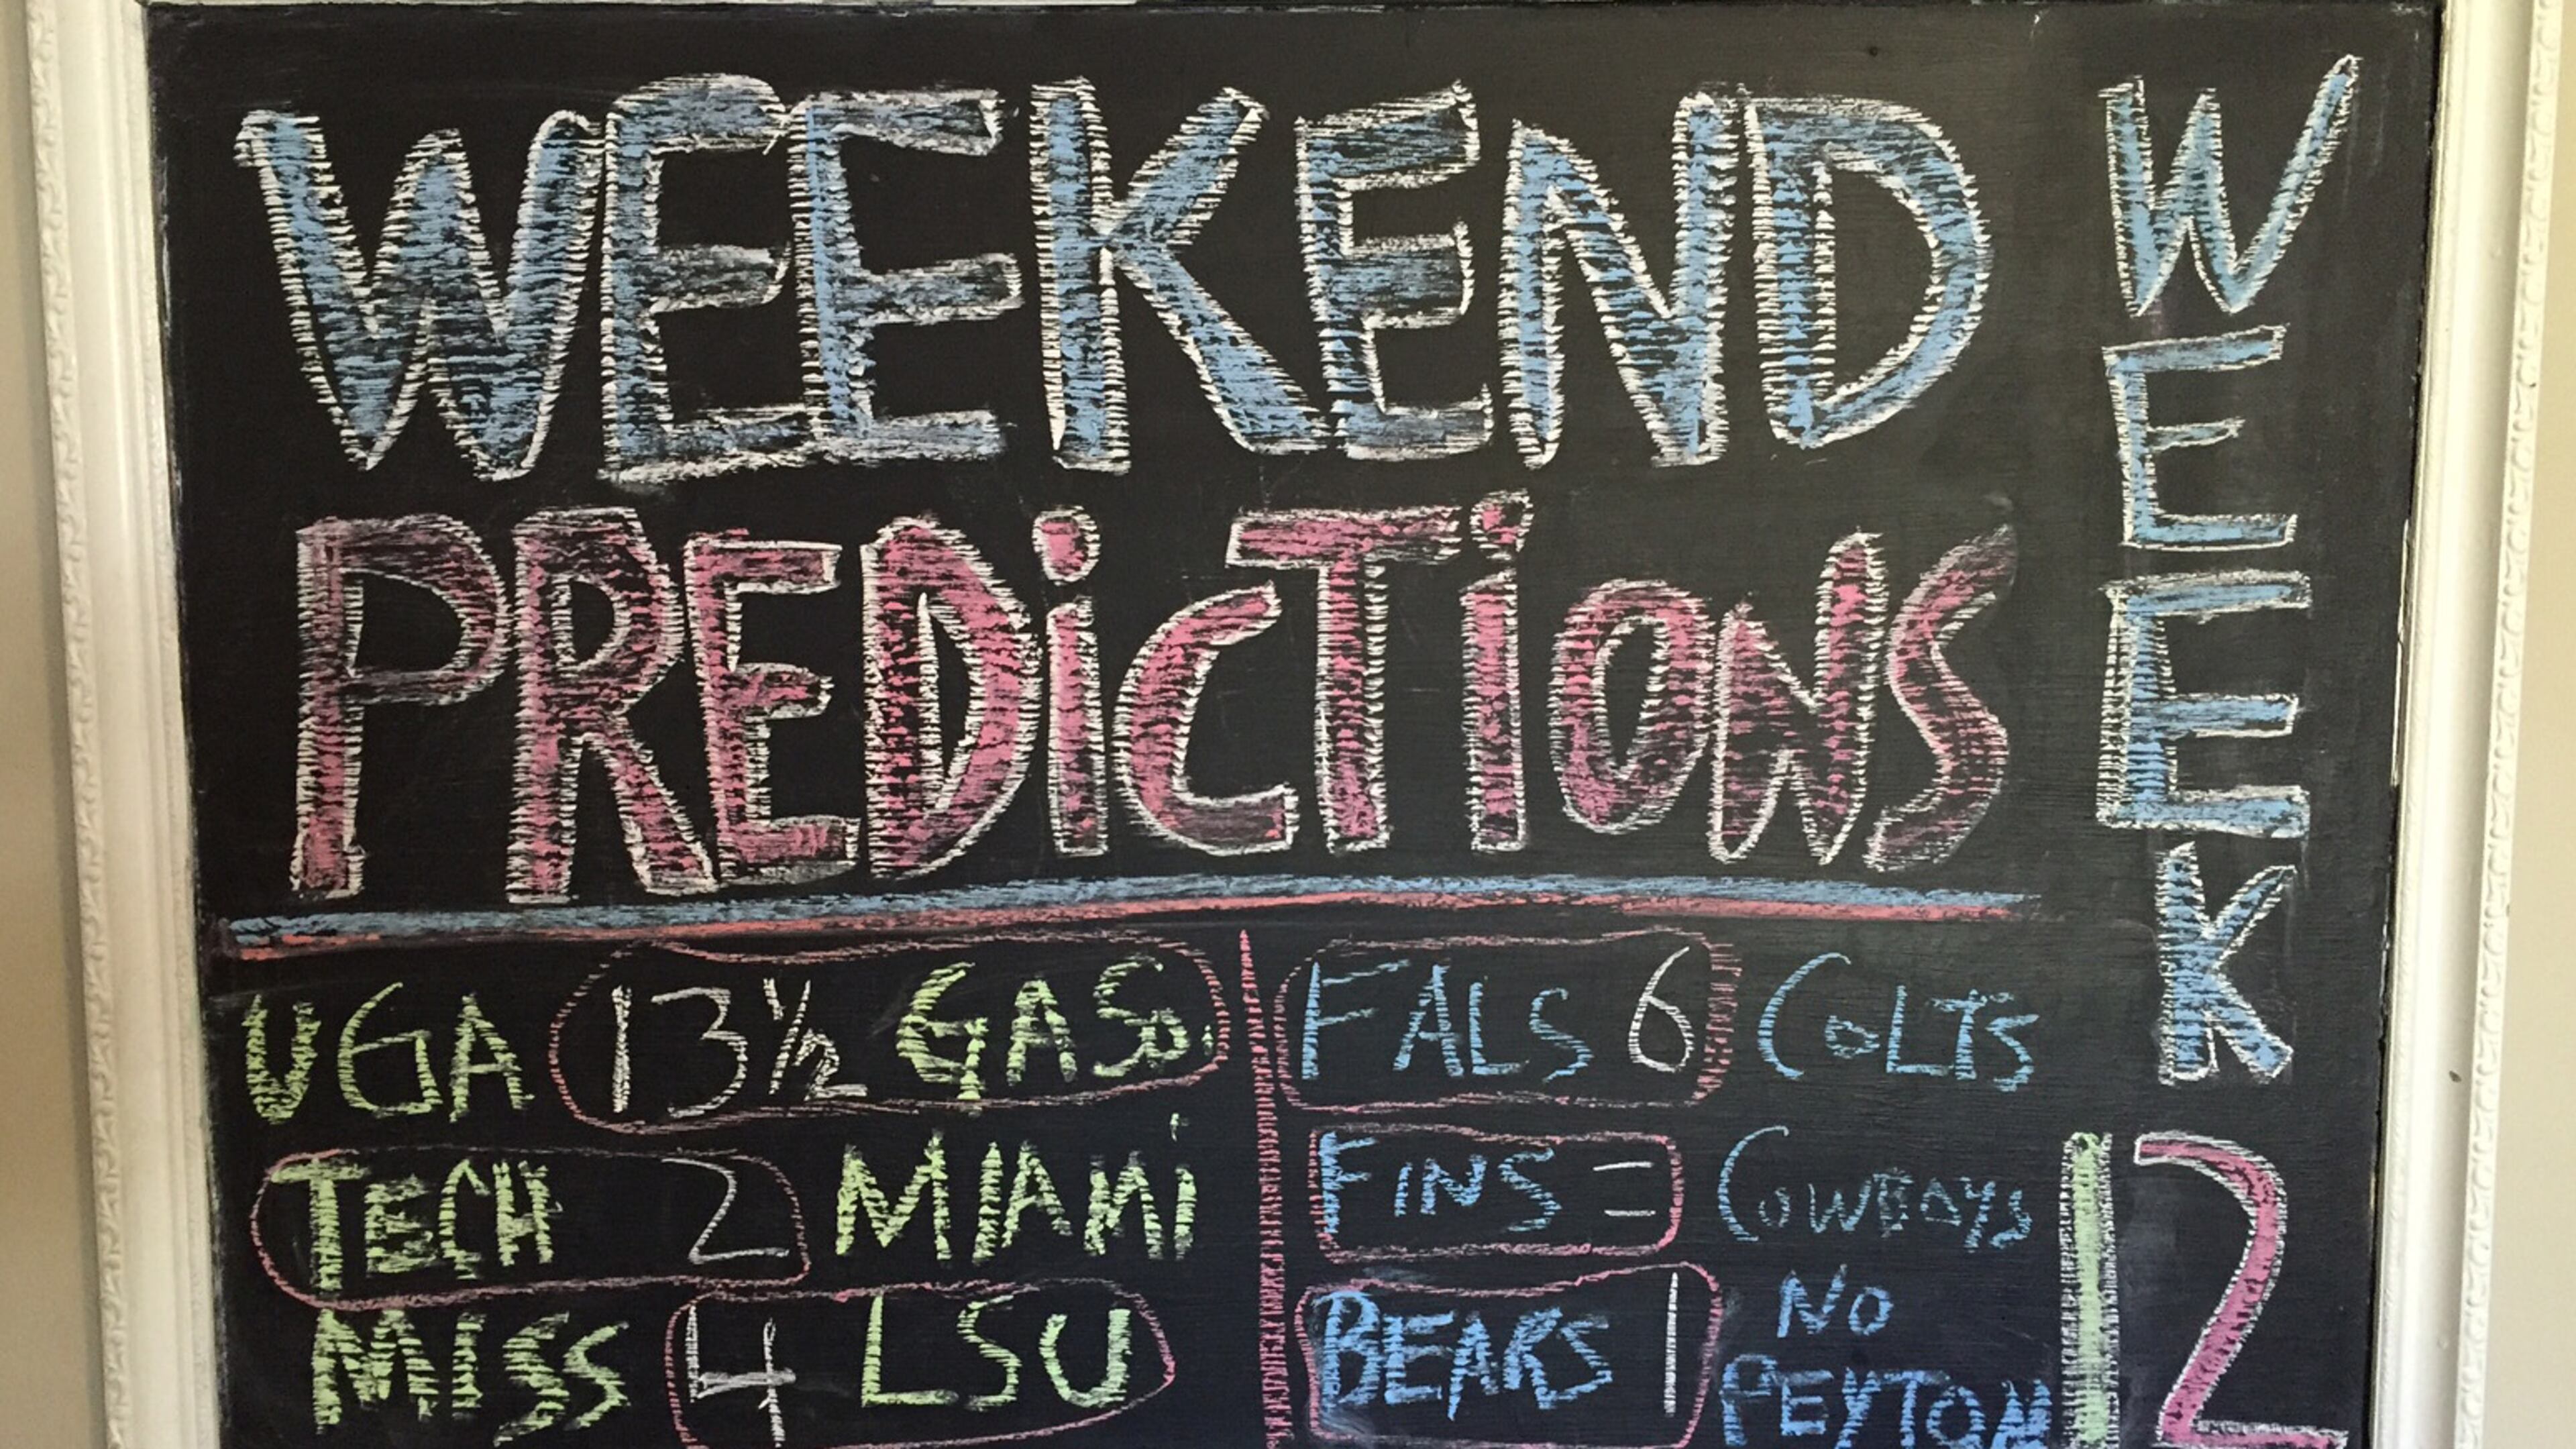 WEEKEND
PREDiCTiONS
WEEK
12
UGA 13½ GASo.
TECH 2 MIAMi
MISS 4 LSU
FALS 6 COLTS
FINS = COWBOYS
BEARS 1 NO PEYTON